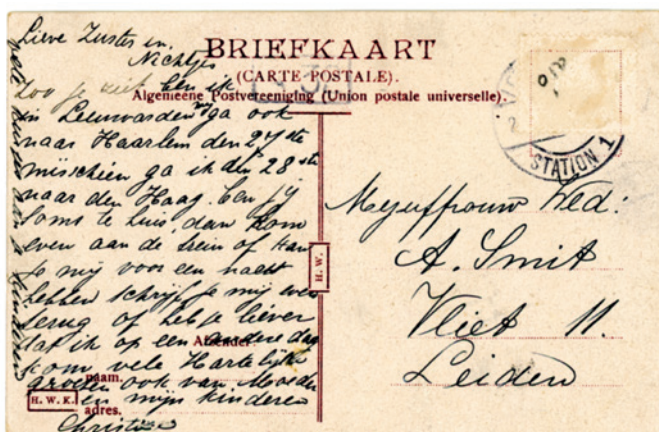 Lieve Zuster en
Nichtjes
BRIEFKAART
(CARTE POSTALE).
Algemeene Postvereeniging (Union postale universelle).
Zoo je ziet ben ik
in Leeuwarden ga ook
naar Haarlem den 27 ste
misschien ga ik den 28 ste
naar den Haag. ben jij
soms te huis, dan kom
even aan de trein of kan
je mij voor een nacht
hebben schrijf je mij even
terug of heb je liever
dat ik op een andere dag
kom vele Hartelijke
groeten ook van Moeder
en mijn kinderen
Christine
Afzender:
naam.
adres.
H. W. K.
H. W.
STATION 1
Mejuffrouw Wed:
A. Smit
Vliet 11.
Leiden